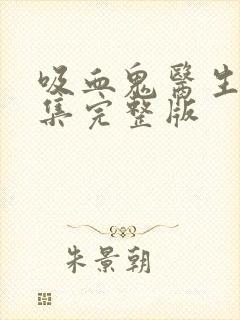 吸血鬼醫生
集完整版
朱景朝